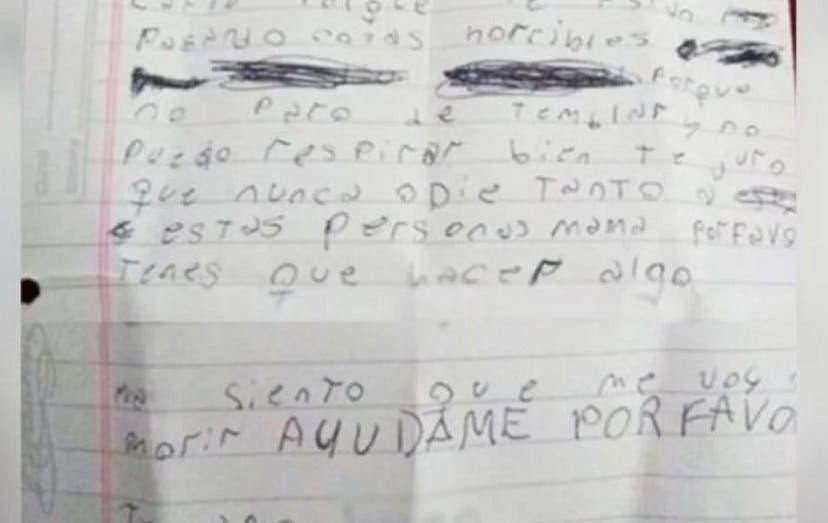 Pasando cosas horribles
Porque
no paro de temblar y no
puedo respirar bien te juro
que nunca odie tanto a
estas personas mama porfavo
tenes que hacer algo
siento que me voy
morir AYUDAME POR FAVO